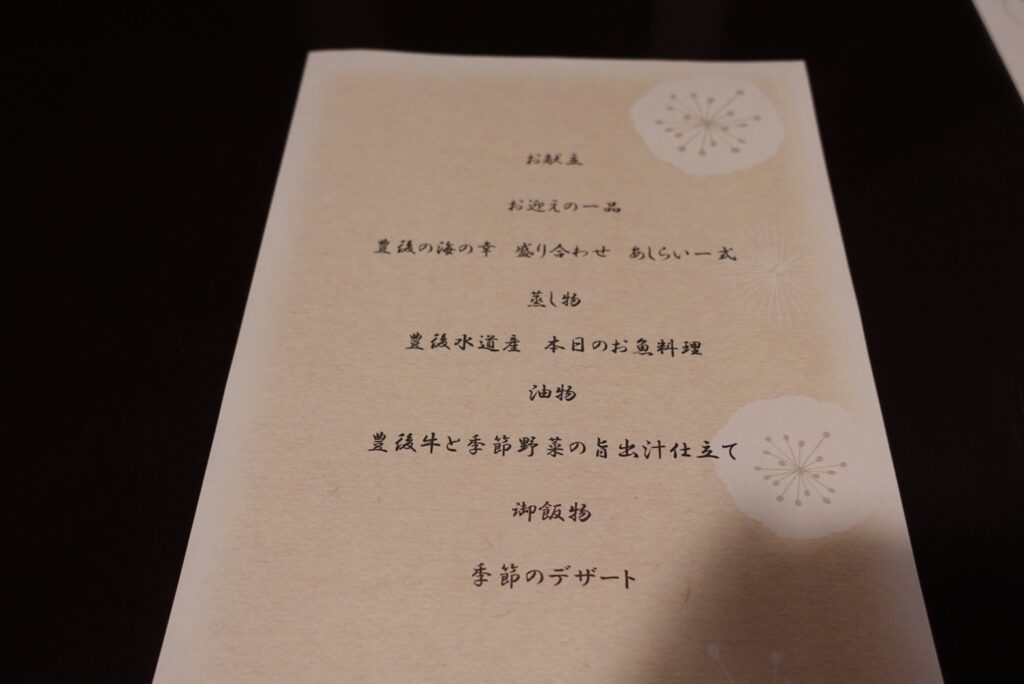 お献立
お迎えの一品
豊後の海の幸　盛り合わせ　あしらい一式
蒸し物
豊後水道産　本日のお魚料理
油物
豊後牛と季節野菜の旨出汁仕立て
御飯物
季節のデザート